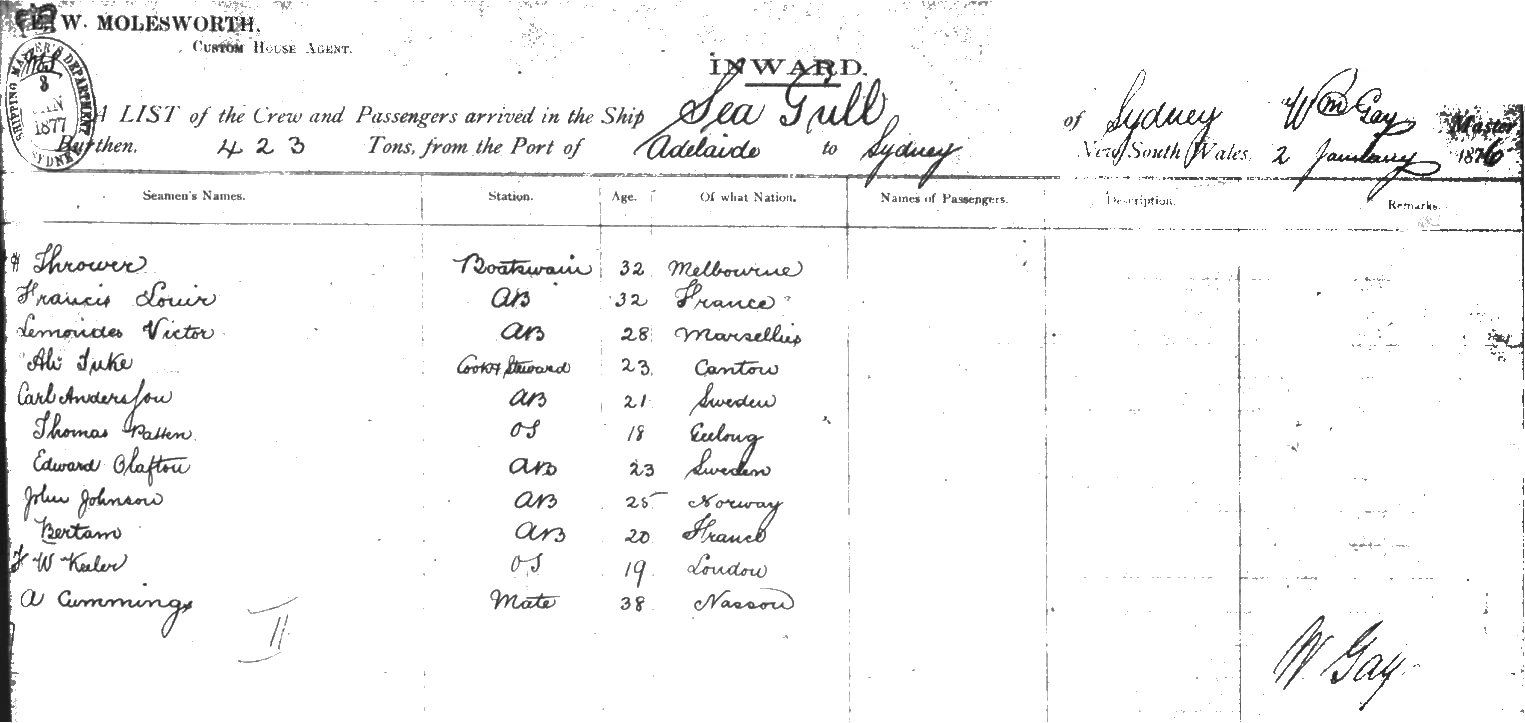 E. W. MOLESWORTH,
CUSTOM HOUSE AGENT.
SHIPPING MASTER'S DEPARTMENT
8
JAN
1877
SYDNEY
INWARD.
A LIST of the Crew and Passengers arrived in the Ship Sea Gull of Sydney Wm Gay Master
Burthen, 423 Tons, from the Port of Adelaide to Sydney New South Wales, 2 January 1876
Seamen's Names. Station. Age. Of what Nation. Names of Passengers. Description. Remarks.
H Thrower Boatswain 32 Melbourne
Francis Louir AB 32 France
Lemondes Victor AB 28 Marsellies
Ah Tuke Cook & Steward 23 Canton
Carl Andersson AB 21 Sweden
Thomas Patten OS 18 Geelong
Edward Olafton AB 23 Sweden
John Johnson AB 25 Norway
Bertam AB 20 France
F W Keeler OS 19 London
A Cummings Mate 38 Nassou
11
W Gay